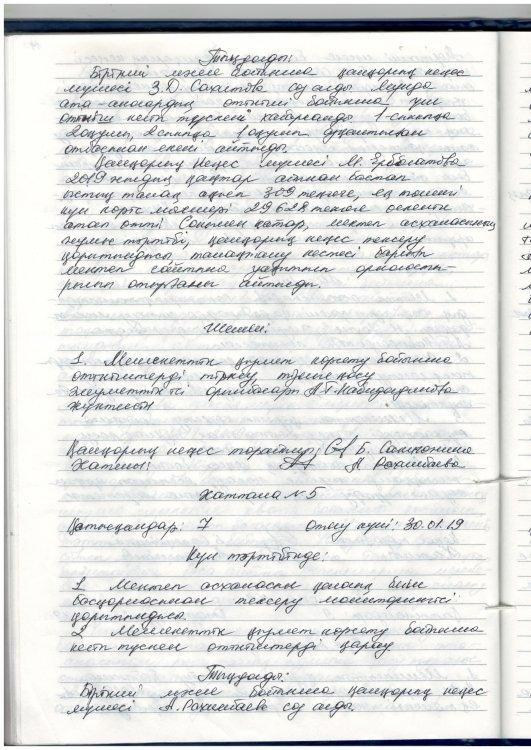 Тыңдалды:
Бірінші мәселе бойынша қамқорлық кеңес
мүшесі З.Ю. Сахитова сөз алды. Мұнда
ата-аналардың өтініші бойынша үш
өтініш келіп түскені хабарланды 1-сыныпқа
2оқушы, 2сыныпқа 1оқушы
отбасынан екені айтылды.
Қамқорлық Кеңес мүшесі М. Ерболатова
2019 жылдың қаңтар айынан бастап
ыстық тамақ ақысы 309 теңгеге, ең төменгі
күн көріс мөлшері 29 628 теңгеге өскенін
атап өтті Сонымен қатар, мектеп асханасының
жұмыс тәртібі, қамқорлық кеңес тексеру
қорытындысы тамақтану кестесі барлығы
мектеп сайтына уақытылы орналасты-
рылып отырғаны айтылды.
Шешім:
1. Мемлекеттік қызмет көрсету бойынша
өтініштерді тіркеу, тізімге қосу
әлеуметтік ісі орынбасары А.Т. Кабидолдинова
жүктелсін
Қамқорлық кеңес төрайымы: Б. Салыкошина
Хатшы: А Рахимбаева
Хаттама N 5
Қатысқандар: 7 Өткізу күні: 30.01.19
Күн тәртібінде:
1 Мектеп асханасын қалалық білім
басқармасынан тексеру мониторингісі
қорытындысы.
2 Мемлекеттік қызмет көрсету бойынша
келіп түскен өтініштерді қарау
Тыңдалды:
Бірінші мәселе бойынша қамқорлық кеңес
мүшесі А.Рахимбаева сөз алды.